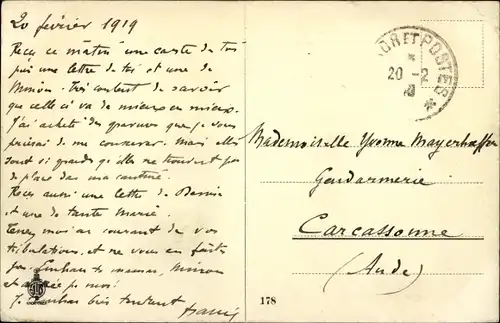 20 février 1919
Reçu ce matin une carte de toi
puis une lettre de toi et une de
Mimon. Très content de savoir
que celle ci va de mieux en mieux.
J'ai acheté des que je vous
de me conserver. Mais elles
sont si grands qu'ils ne trouvent pas
de place dans ma cantine
Reçu aussi une lettre de
et une de tante Marie.
Tenez moi au courant de vos
tribulations, et ne vous en faites
pas. maman, Mimon
et moi!
J. bien tendrement
TRÉSOR ET POSTES
20-2
Mademoiselle Yvonne Mayerhoeffer
Gendarmerie
Carcassonne
(Aude)
178